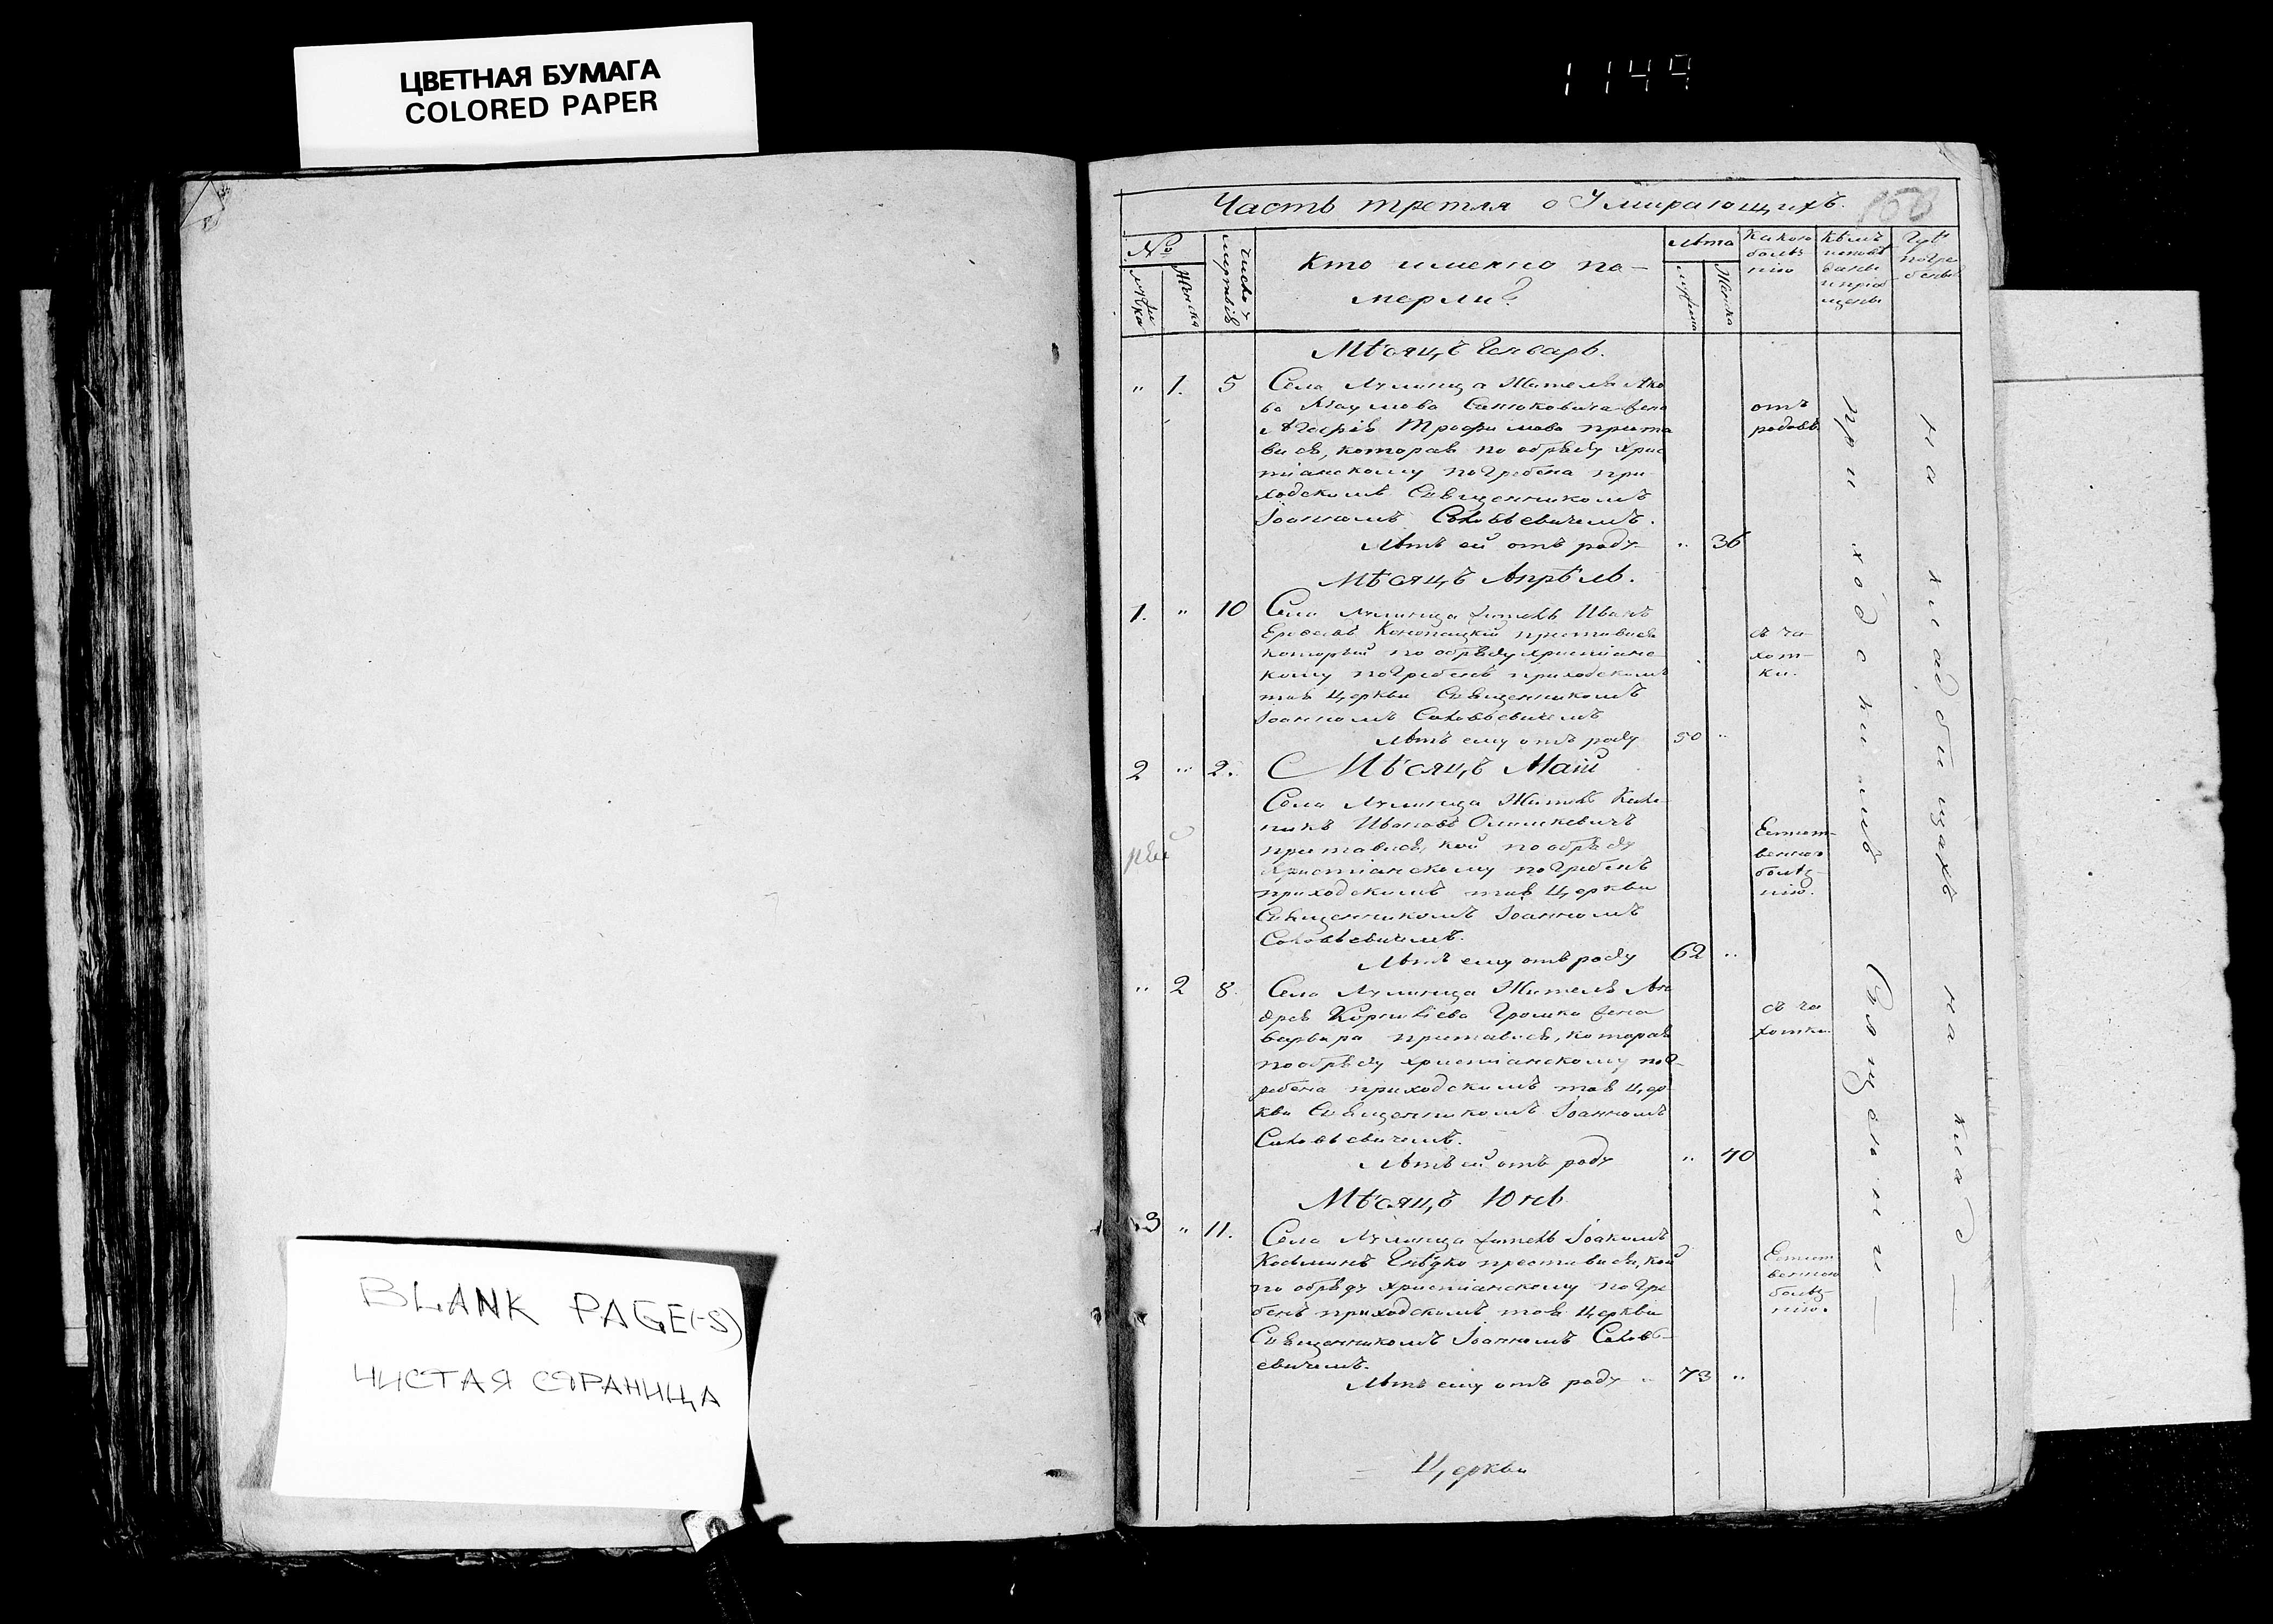 ЦВЕТНАЯ БУМАГА
COLORED PAPER
1149
BLANK PAGE(-S)
ЧИСТАЯ СТРАНИЦА
Часть третля о Умирающихъ.
№
Кто именно по-
мерли?
лѣта
Какою
болѣз
нію
Кѣмъ
Мѣсяцъ Генварь.
" 1. 5 Села Лулинца Жителя Яко
ва Наумова жена
Трофимова приста
вися, которая по обряду Хрис
тіанскому погребена при
ходскимъ Священникомъ
Іоанномъ Соловьевичемъ.
Лѣтъ ей отъ роду " 36
отъ
родовъ
Мѣсяцъ Апрѣль.
1. " 10 Села Лулинца житель Иванъ
преставися
который по обряду христіанс
кому погребенъ приходскимъ
тоя Церкви Священникомъ
Іоанномъ Соловьевичемъ
Лѣтъ ему отъ роду 50 "
съ ча-
хот-
ки.
2 " 2. Мѣсяцъ Маій
Села Лулинца Житель
Ивановъ
приставися, кой по обряду
Христіанскому погребенъ
приходскимъ тоя Церкви
Священникомъ Іоанномъ
Соловьевичемъ.
Лѣтъ ему отъ роду 62 "
Естест-
венною
болѣз-
нію.
" 2 8. Села Лулинца Жителя Ан
дрея Корнѣева Громко жена
Варвара приставися, которая
по обряду христіанскому пог-
ребена приходскимъ тоя Цер
кви Священникомъ Іоанномъ
Соловьевичемъ.
Лѣтъ ей отъ роду " 40
съ ча
хотки.
Мѣсяцъ Юнь
3 " 11. Села Лулинца житель Іоакимъ
Косминъ преставися, кой
по обряду христіанскому погре
бенъ приходскимъ тоя Церкви
Священникомъ Іоанномъ Соловь-
евичемъ.
Лѣтъ ему отъ роду 73 "
Естест
венною
болѣз
нію.
приходскимъ Священни-
на кладбищахъ на клад-
Церкви